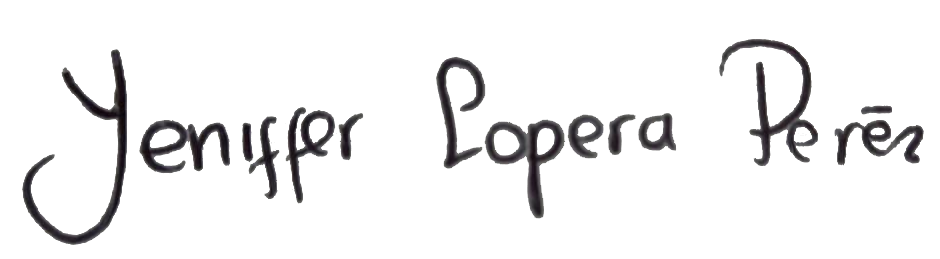 Yeniffer Lopera Perēz